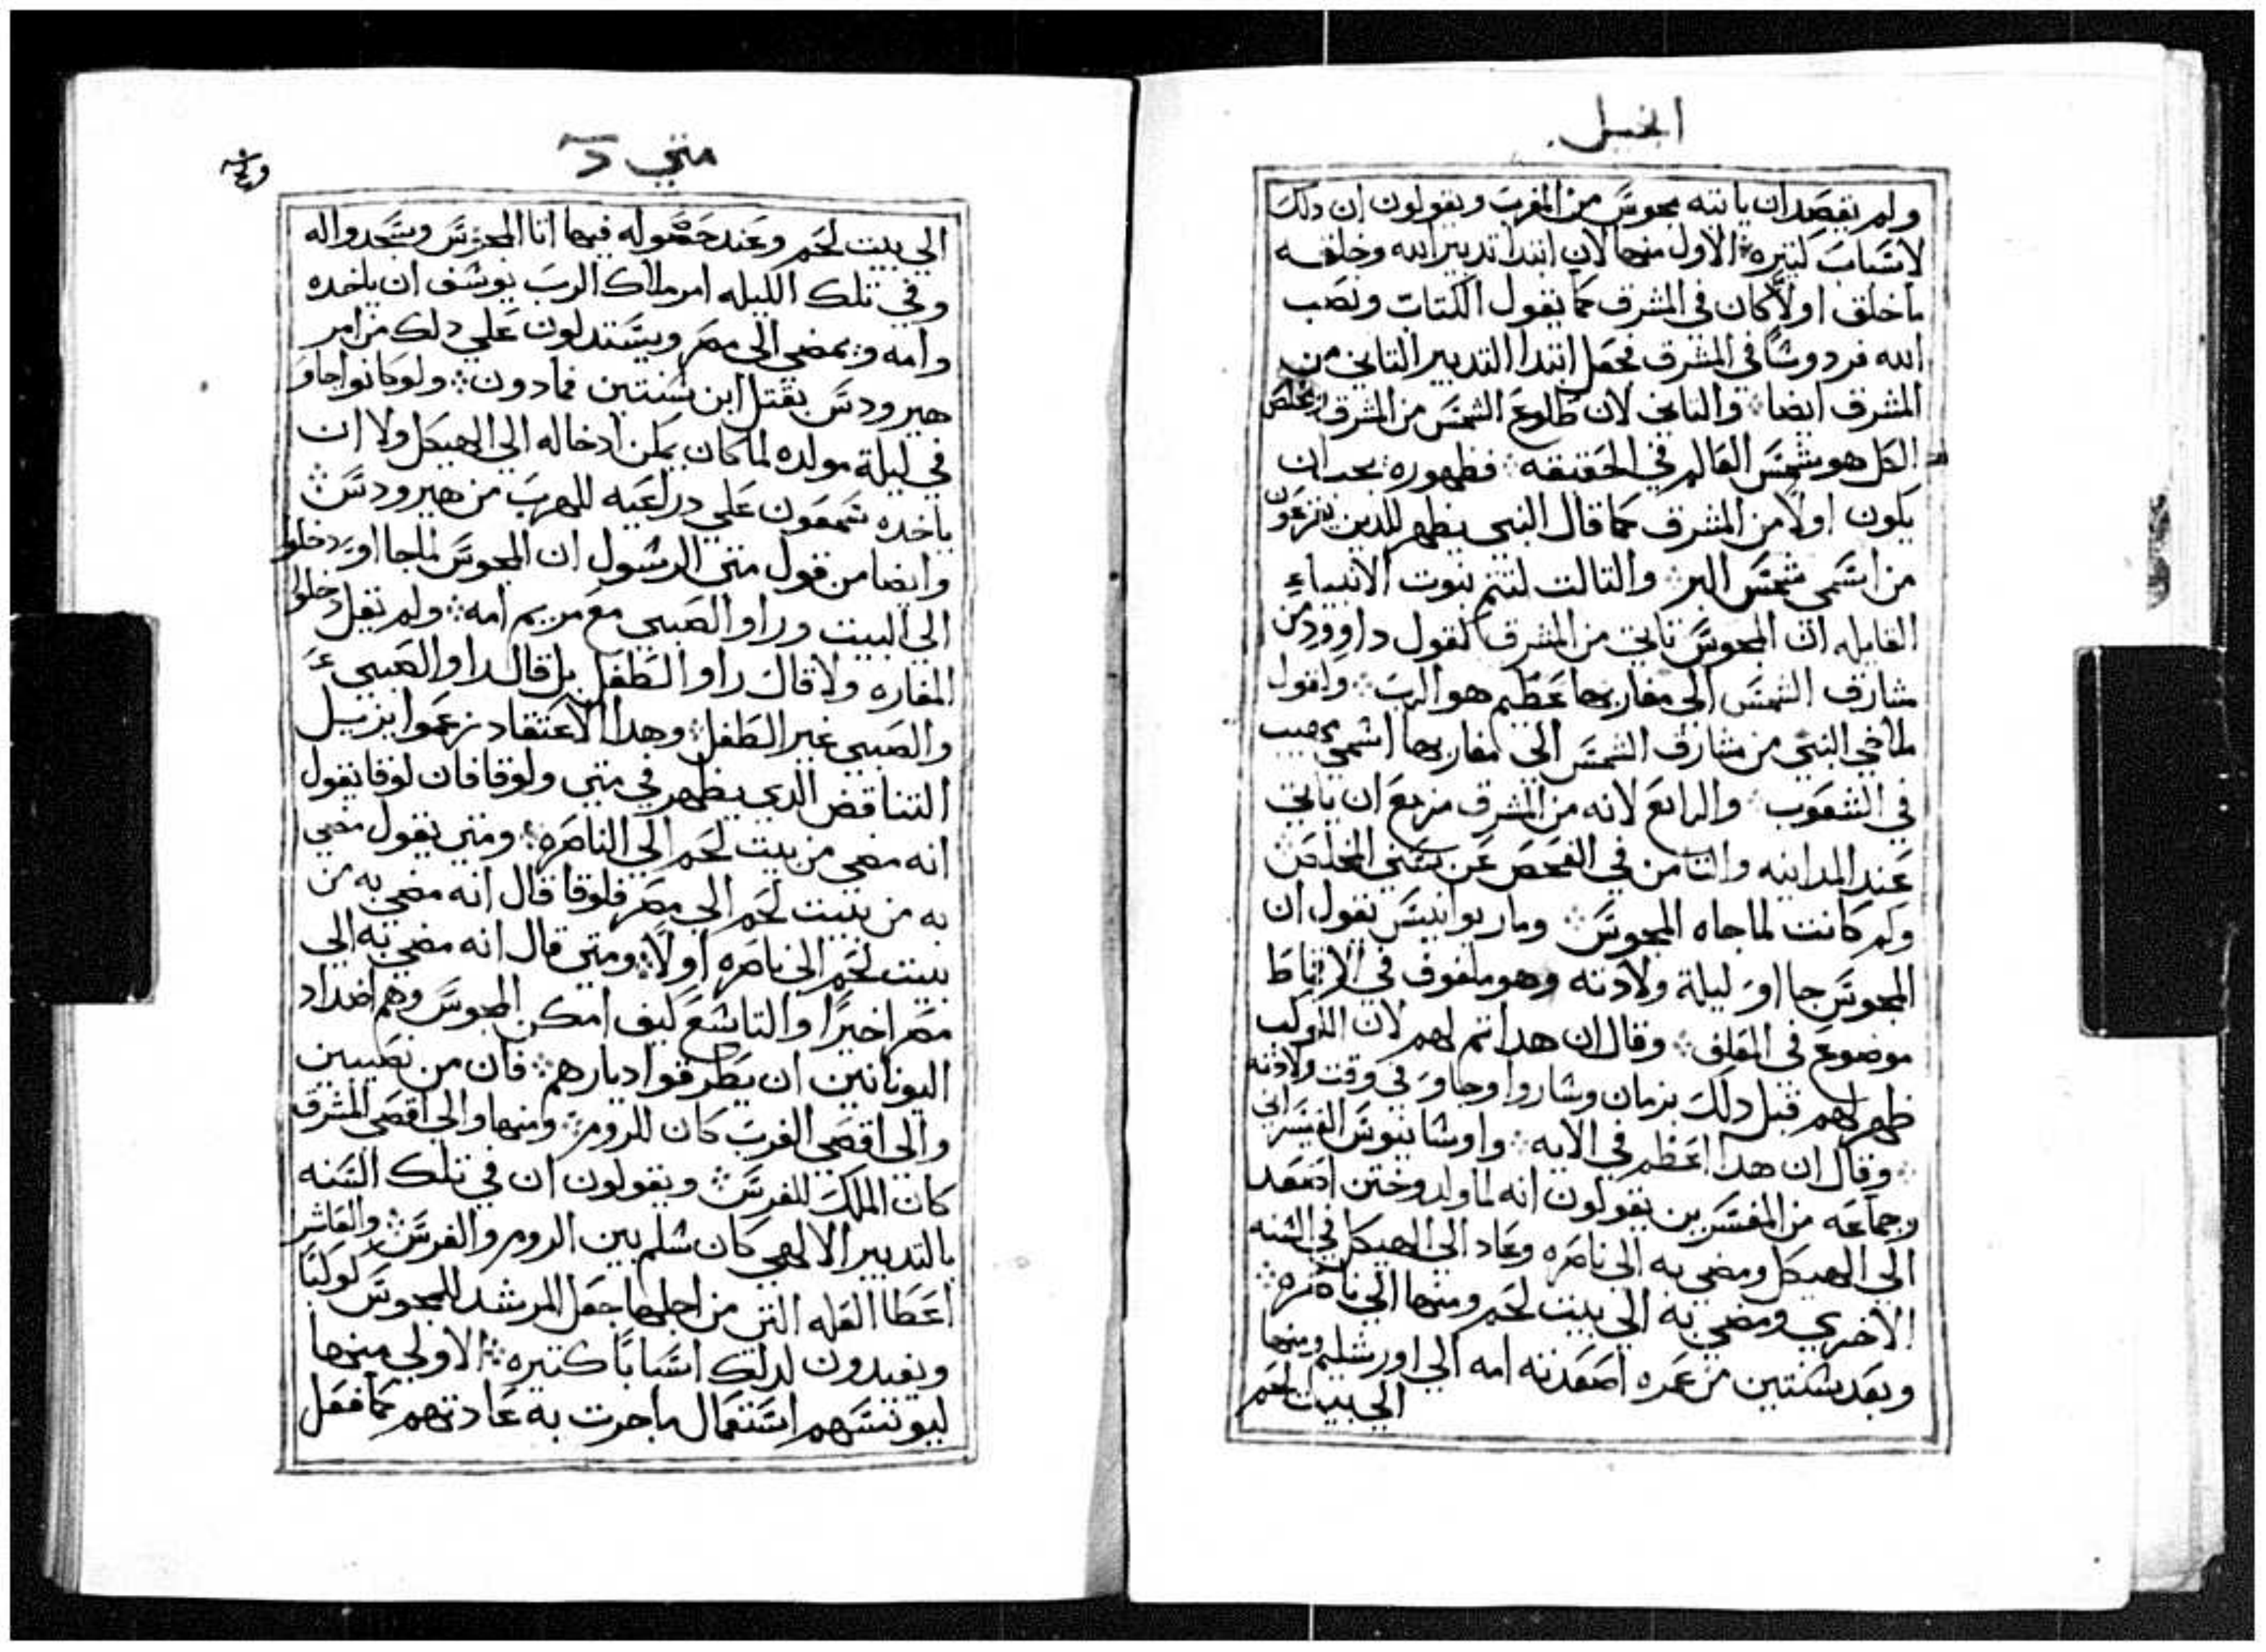 انجيل
ولم يقصد ان ياتيه مجوس من المغرب ويقولون ان دلك
لاسباب كتيره الاول منها لان ابتدا تدبير الله وخلقه
ما خلق اولًا كان في المشرق كما يقول الكتاب ونصب
الله فردوسًا في المشرق فجعل ابتدا التدبير التاني من
المشرق ايضا والتاني لان طلوع الشمس من المشرق ومخلص
الكل هو شمس العالم في الحقيقه فظهوره يجب ان
يكون اولًا من المشرق كما قال النبي يظهر للدين يفزعون
من اسمي شمس البر والتالت لتتم نبوت الانبياء
القايله ان المجوس تاتي من المشرق كقول داوود من
مشارق الشمس الي مغاربها عظيم هو الرب وكقول
ملاخي النبي من مشارق الشمس الي مغاربها اسمي مهيب
في الشعوب والرابع لانه من المشرق مزمع ان ياتي
عند المداينه والتامن في الفحص عن سني المخلص
وكم كانت لما جاه المجوس ومار يوانيس يقول ان
المجوس جااو ليلة ولادته وهو ملفوف في الاقماط
موضوع في المعلف وقال ان هدا تم لهم لان الكوكب
ظهر لهم قبل دلك بزمان وساروا وجاو في وقت ولادته
وقال ان هدا اعظم في الايه واوسابيوس القيسراني
وجماعه من المفسرين يقولون انه لما ولد وختن اصعد
الي الهيكل ومضي به الي ناصره وعاد الي الهيكل في السنه
الاخري ومضي به الي بيت لحم ومنها الي ناصره
وبعد سنتين من عمره اصعدته امه الي اورشليم ومنها
الي بيت لحم
متي د
الي بيت لحم وعند حصوله فيها اتا المجوس وسجدوا له
وفي تلك الليله امر ملاك الرب يوسف ان ياخده
وامه ويمضي الي مصر ويستدلون علي دلك من امر
هيرودس بقتل ابن سنتين فمادون ولو كانوا جاو
في ليلة مولده لما كان يمكن ادخاله الي الهيكل ولا ان
ياخده سمعون علي دراعيه للهرب من هيرودس
وايضا من قول متي الرسول ان المجوس لما جااو دخلوا
الي البيت وراو الصبي مع مريم امه ولم يقل دخلوا
المغاره ولا قال راو الطفل بل قال راو الصبي
والصبي غير الطفل وهدا الاعتقاد زعموا يزيل
التناقض الدي يظهر في متي ولوقا فان لوقا يقول
انه مضي من بيت لحم الي الناصره ومتي يقول مضي
به من بيت لحم الي مصر فلوقا قال انه مضي به من
بيت لحم الي ناصره اولًا ومتي قال انه مضي به الي
مصر اخيرًا والتاسع كيف امكن المجوس وهم اضداد
اليونانين ان يطرقوا ديارهم فان من نصيبين
والي اقصي الغرب كان للروم ومنها والي اقصي المشرق
كان الملك للفرس ويقولون ان في تلك السنه
بالتدبير الالهي كان سلم بين الروم والفرس والعاشر
اعطا العله التي من اجلها جعل المرشد للمجوس كوكبًا
ويفيدون لدلك اسبابًا كتيره الاولي منها
ليونسهم استعمال ما جرت به عادتهم كما فعل